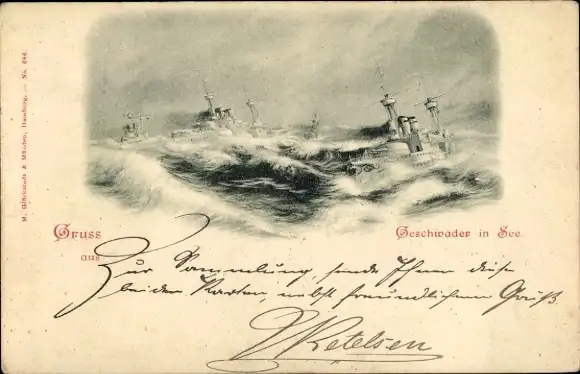 M. Glückstadt & Münden, Hamburg. — No. 686.
Gruss
aus
Geschwader in See
Zur Sammlung, sende Ihnen diese
beiden Karten, nebst freundlichem Gruß.
Ketelsen